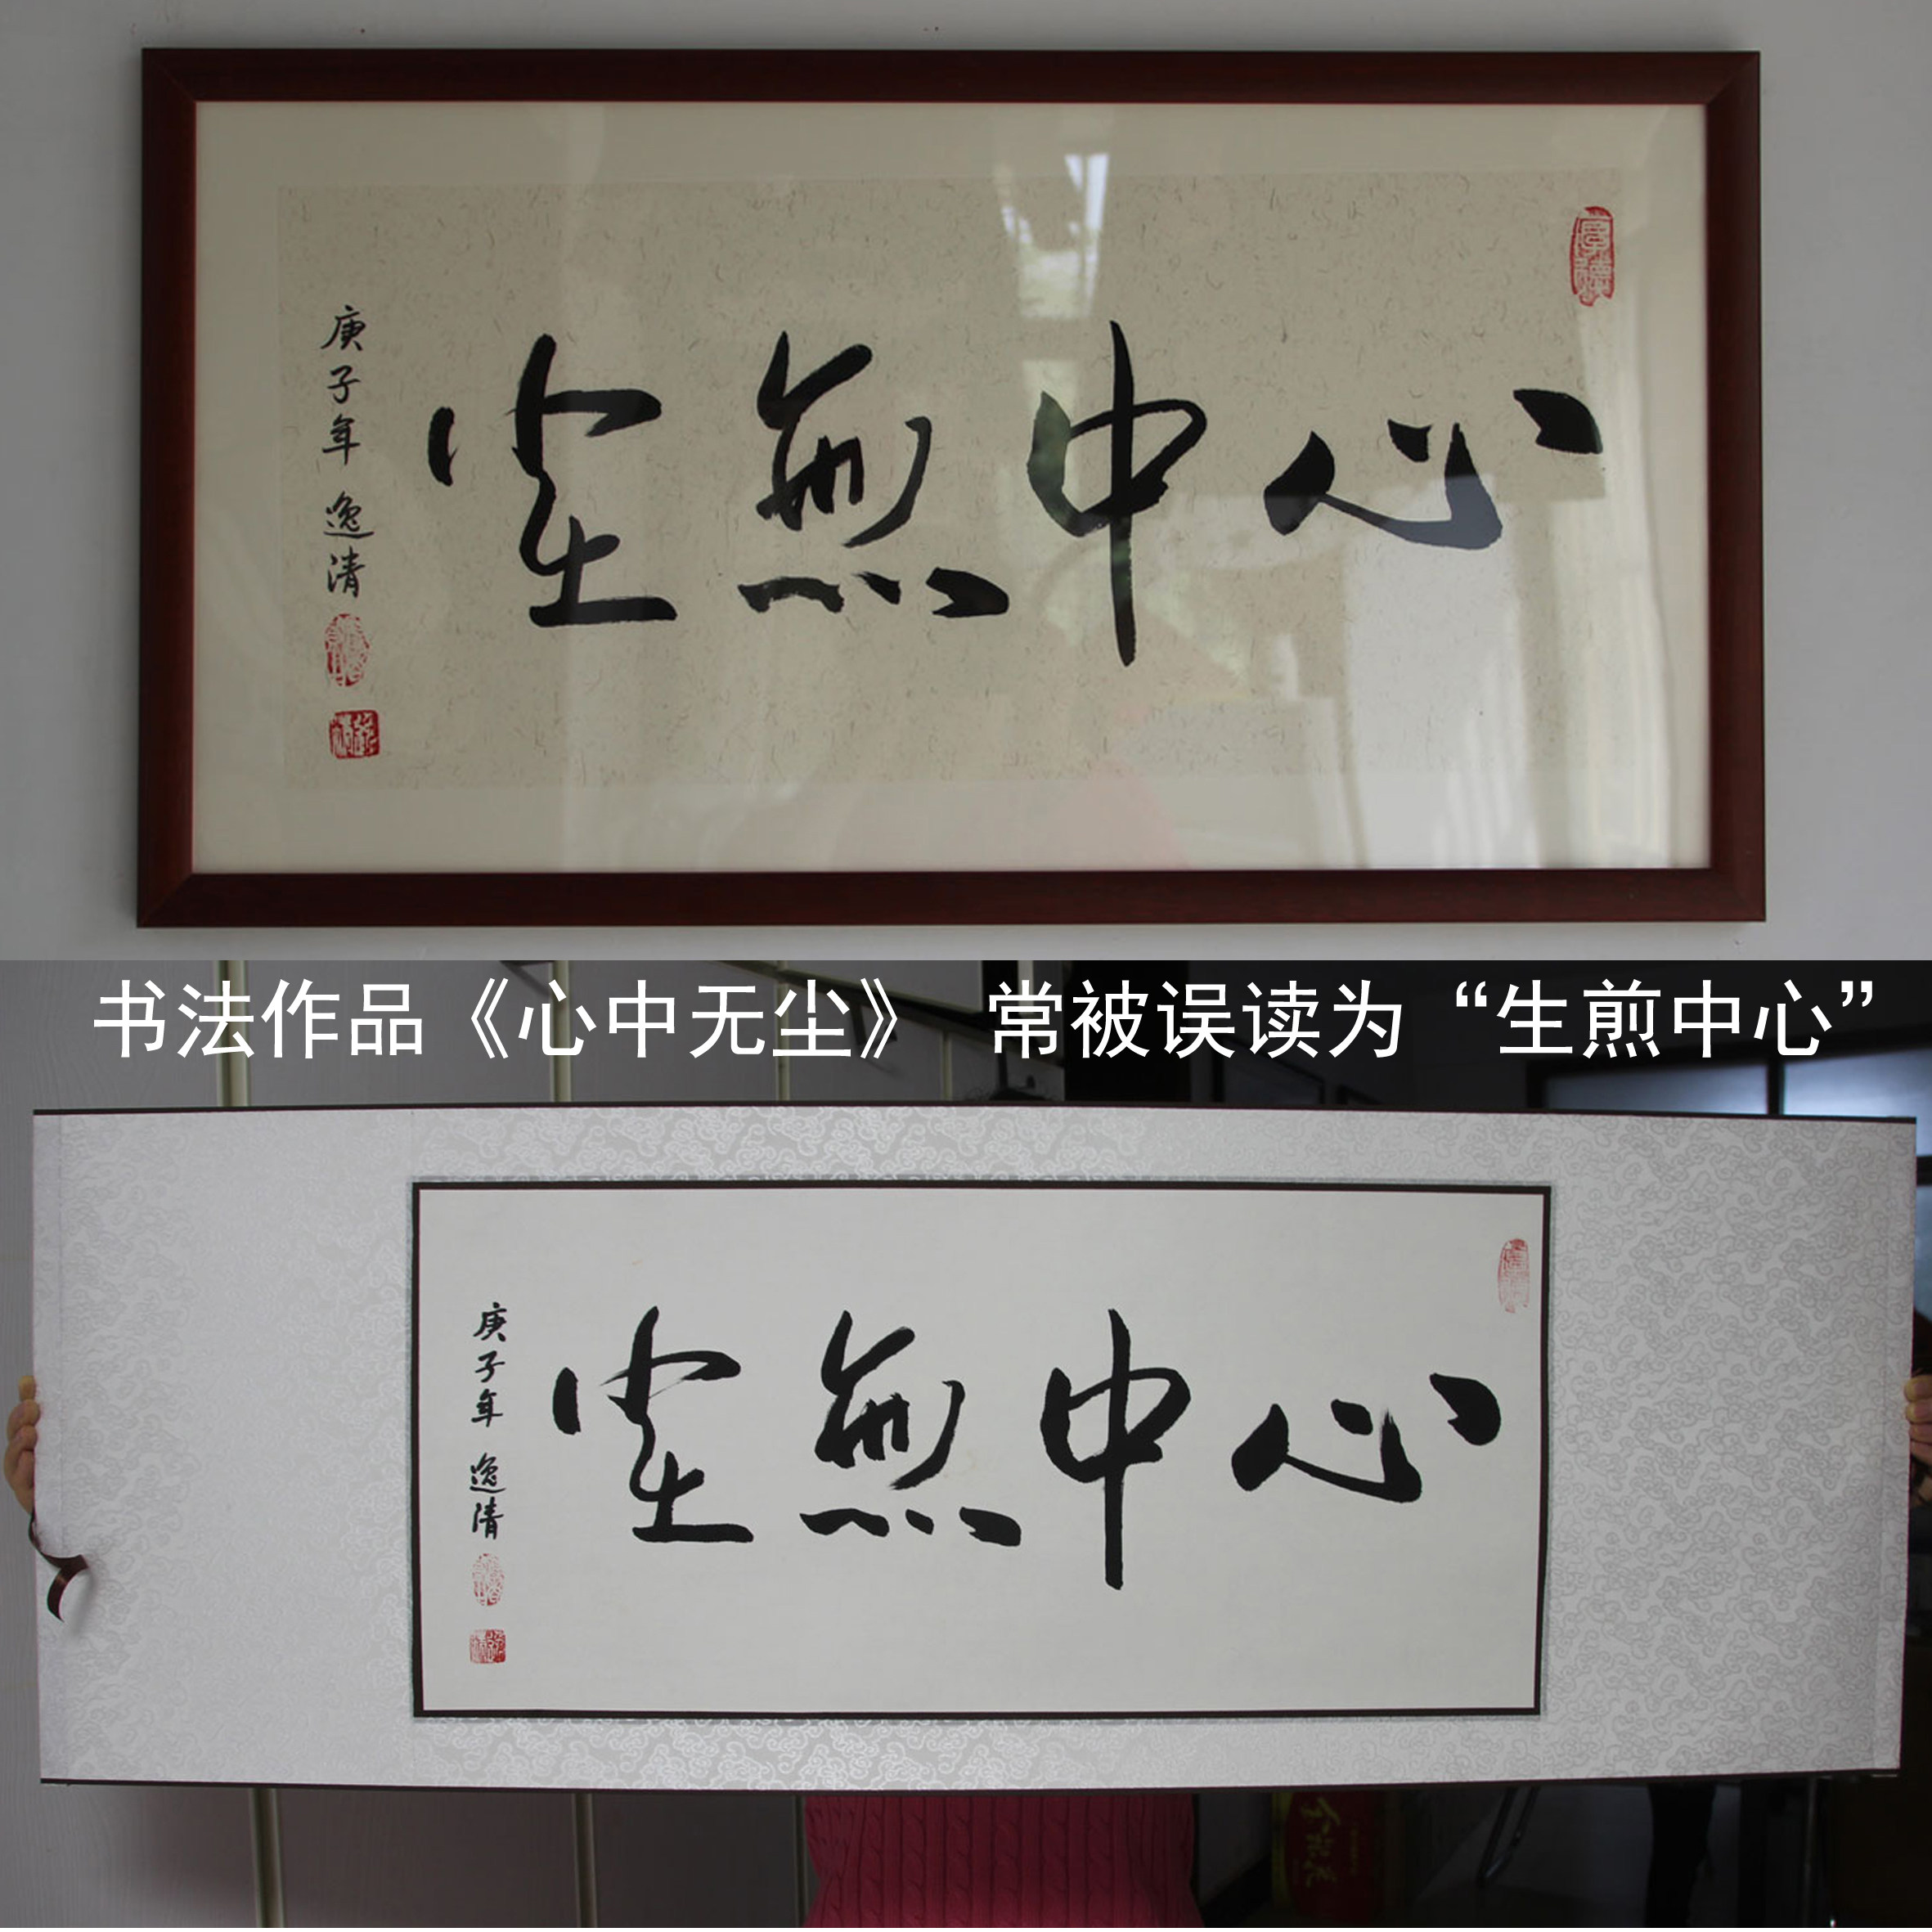 心中無尘
庚子年 逸清
厚德
书法作品《心中无尘》 常被误读为“生煎中心”
心中無尘
庚子年 逸清